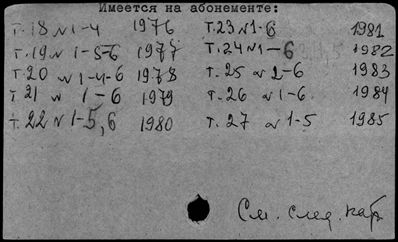 Имеется на абонементе:
т. 18 N 1-4 1976 т. 23 N 1-6 1981
т. 19 N 1-5-6 1977 т. 24 N 1-6 1982
т. 20 N 1-4-6 1978 т. 25 N 2-6 1983
т. 21 N 1-6 1979 т. 26 N 1-6. 1984
т. 22 N 1-5,6 1980 т. 27 N 1-5 1985
См. след. кар